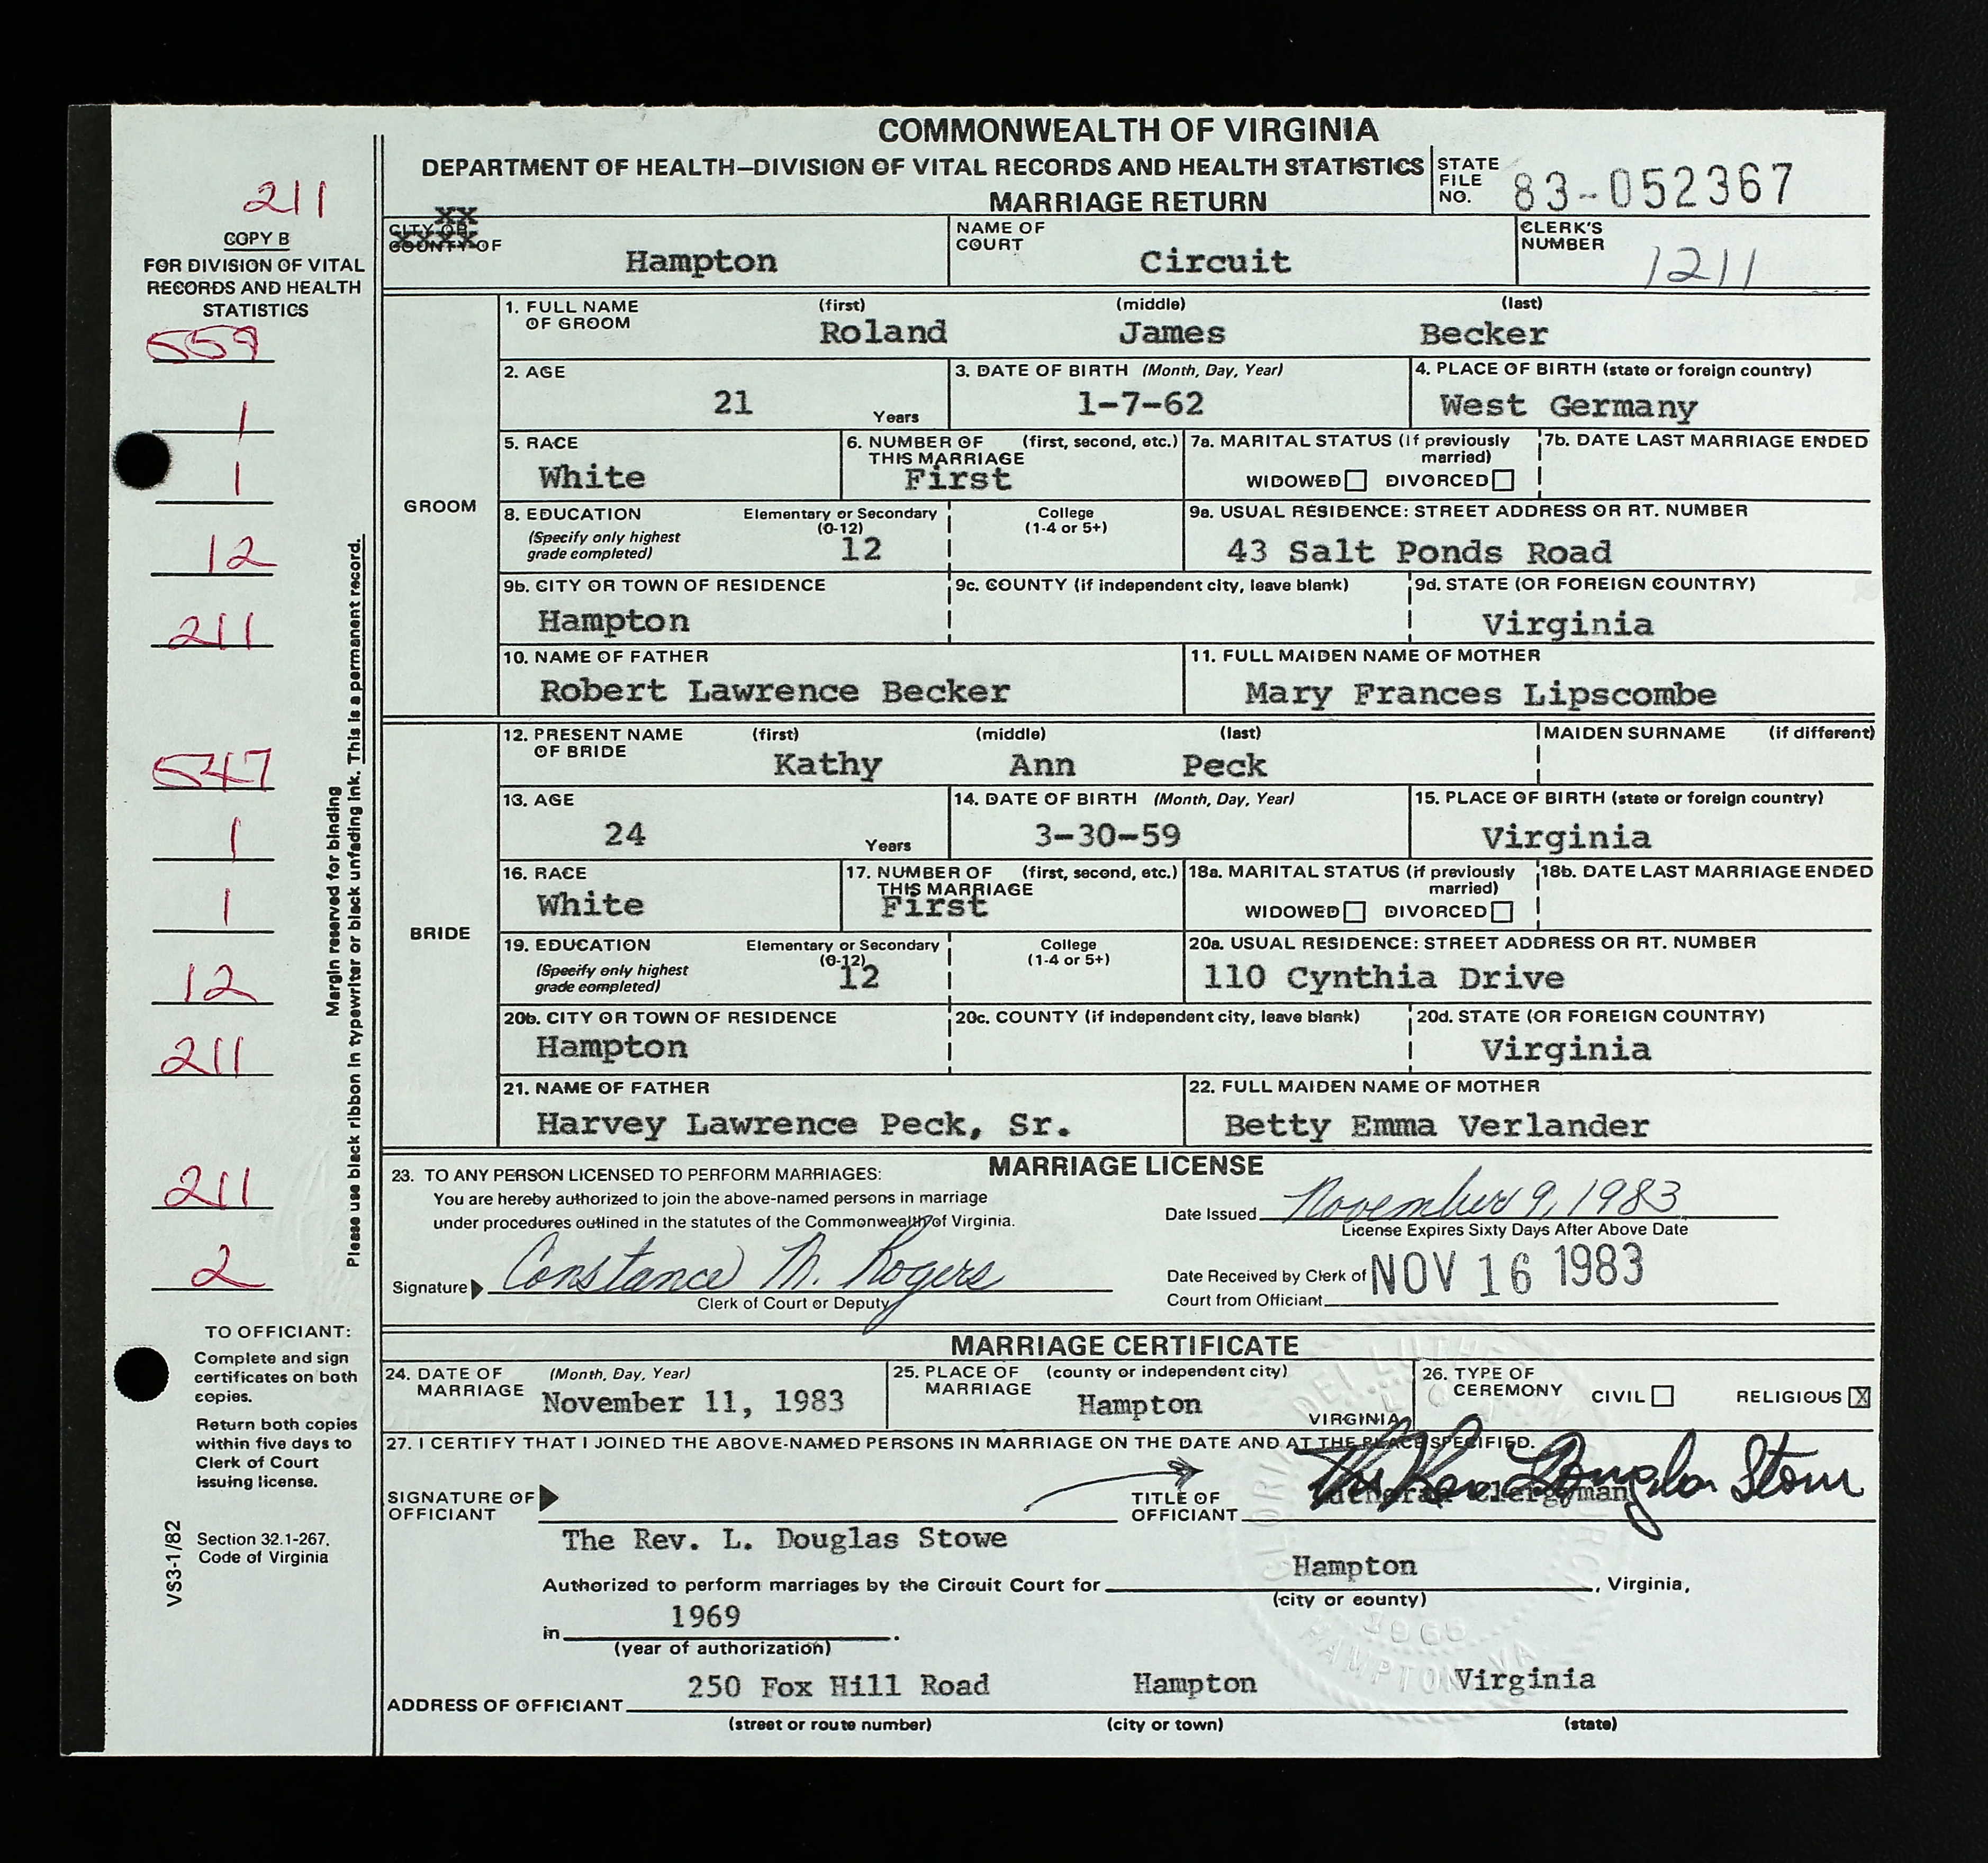 COMMONWEALTH OF VIRGINIA
DEPARTMENT OF HEALTH—DIVISION OF VITAL RECORDS AND HEALTH STATISTICS
MARRIAGE RETURN
STATE FILE NO. 83-052367
211
COPY B
FOR DIVISION OF VITAL
RECORDS AND HEALTH
STATISTICS
559
1
1
12
211
547
1
1
12
211
211
2
Margin reserved for binding
Please use black ribbon in typewriter or black unfading ink. This is a permanent record.
TO OFFICIANT:
Complete and sign
certificates on both
copies.
Return both copies
within five days to
Clerk of Court
issuing license.
Section 32.1-267,
Code of Virginia
VS3-1/82
XX
XXXX
CITY OR
COUNTY OF Hampton
NAME OF COURT Circuit
CLERK'S NUMBER 1211
GROOM
1. FULL NAME OF GROOM (first) (middle) (last)
Roland James Becker
2. AGE 21 Years
3. DATE OF BIRTH (Month, Day, Year) 1-7-62
4. PLACE OF BIRTH (state or foreign country) West Germany
5. RACE White
6. NUMBER OF THIS MARRIAGE (first, second, etc.) First
7a. MARITAL STATUS (If previously married) WIDOWED DIVORCED
7b. DATE LAST MARRIAGE ENDED
8. EDUCATION (Specify only highest grade completed) Elementary or Secondary (0-12) 12 College (1-4 or 5+)
9a. USUAL RESIDENCE: STREET ADDRESS OR RT. NUMBER 43 Salt Ponds Road
9b. CITY OR TOWN OF RESIDENCE Hampton
9c. COUNTY (if independent city, leave blank)
9d. STATE (OR FOREIGN COUNTRY) Virginia
10. NAME OF FATHER Robert Lawrence Becker
11. FULL MAIDEN NAME OF MOTHER Mary Frances Lipscombe
BRIDE
12. PRESENT NAME OF BRIDE (first) (middle) (last) MAIDEN SURNAME (if different)
Kathy Ann Peck
13. AGE 24 Years
14. DATE OF BIRTH (Month, Day, Year) 3-30-59
15. PLACE OF BIRTH (state or foreign country) Virginia
16. RACE White
17. NUMBER OF THIS MARRIAGE (first, second, etc.) First
18a. MARITAL STATUS (if previously married) WIDOWED DIVORCED
18b. DATE LAST MARRIAGE ENDED
19. EDUCATION (Specify only highest grade completed) Elementary or Secondary (0-12) 12 College (1-4 or 5+)
20a. USUAL RESIDENCE: STREET ADDRESS OR RT. NUMBER 110 Cynthia Drive
20b. CITY OR TOWN OF RESIDENCE Hampton
20c. COUNTY (if independent city, leave blank)
20d. STATE (OR FOREIGN COUNTRY) Virginia
21. NAME OF FATHER Harvey Lawrence Peck, Sr.
22. FULL MAIDEN NAME OF MOTHER Betty Emma Verlander
MARRIAGE LICENSE
23. TO ANY PERSON LICENSED TO PERFORM MARRIAGES:
You are hereby authorized to join the above-named persons in marriage
under procedures outlined in the statutes of the Commonwealth of Virginia.
Date Issued November 9, 1983
License Expires Sixty Days After Above Date
Signature Constance M. Rogers
Clerk of Court or Deputy
Date Received by Clerk of
Court from Officiant NOV 16 1983
MARRIAGE CERTIFICATE
24. DATE OF MARRIAGE (Month, Day, Year) November 11, 1983
25. PLACE OF MARRIAGE (county or independent city) Hampton VIRGINIA
26. TYPE OF CEREMONY CIVIL RELIGIOUS X
27. I CERTIFY THAT I JOINED THE ABOVE-NAMED PERSONS IN MARRIAGE ON THE DATE AND AT THE PLACE SPECIFIED.
SIGNATURE OF OFFICIANT
TITLE OF OFFICIANT Lutheran Clergyman
The Rev. L. Douglas Stowe
Authorized to perform marriages by the Circuit Court for Hampton, Virginia,
(city or county)
in 1969.
(year of authorization)
ADDRESS OF OFFICIANT 250 Fox Hill Road Hampton Virginia
(street or route number) (city or town) (state)
HAMPTON VA